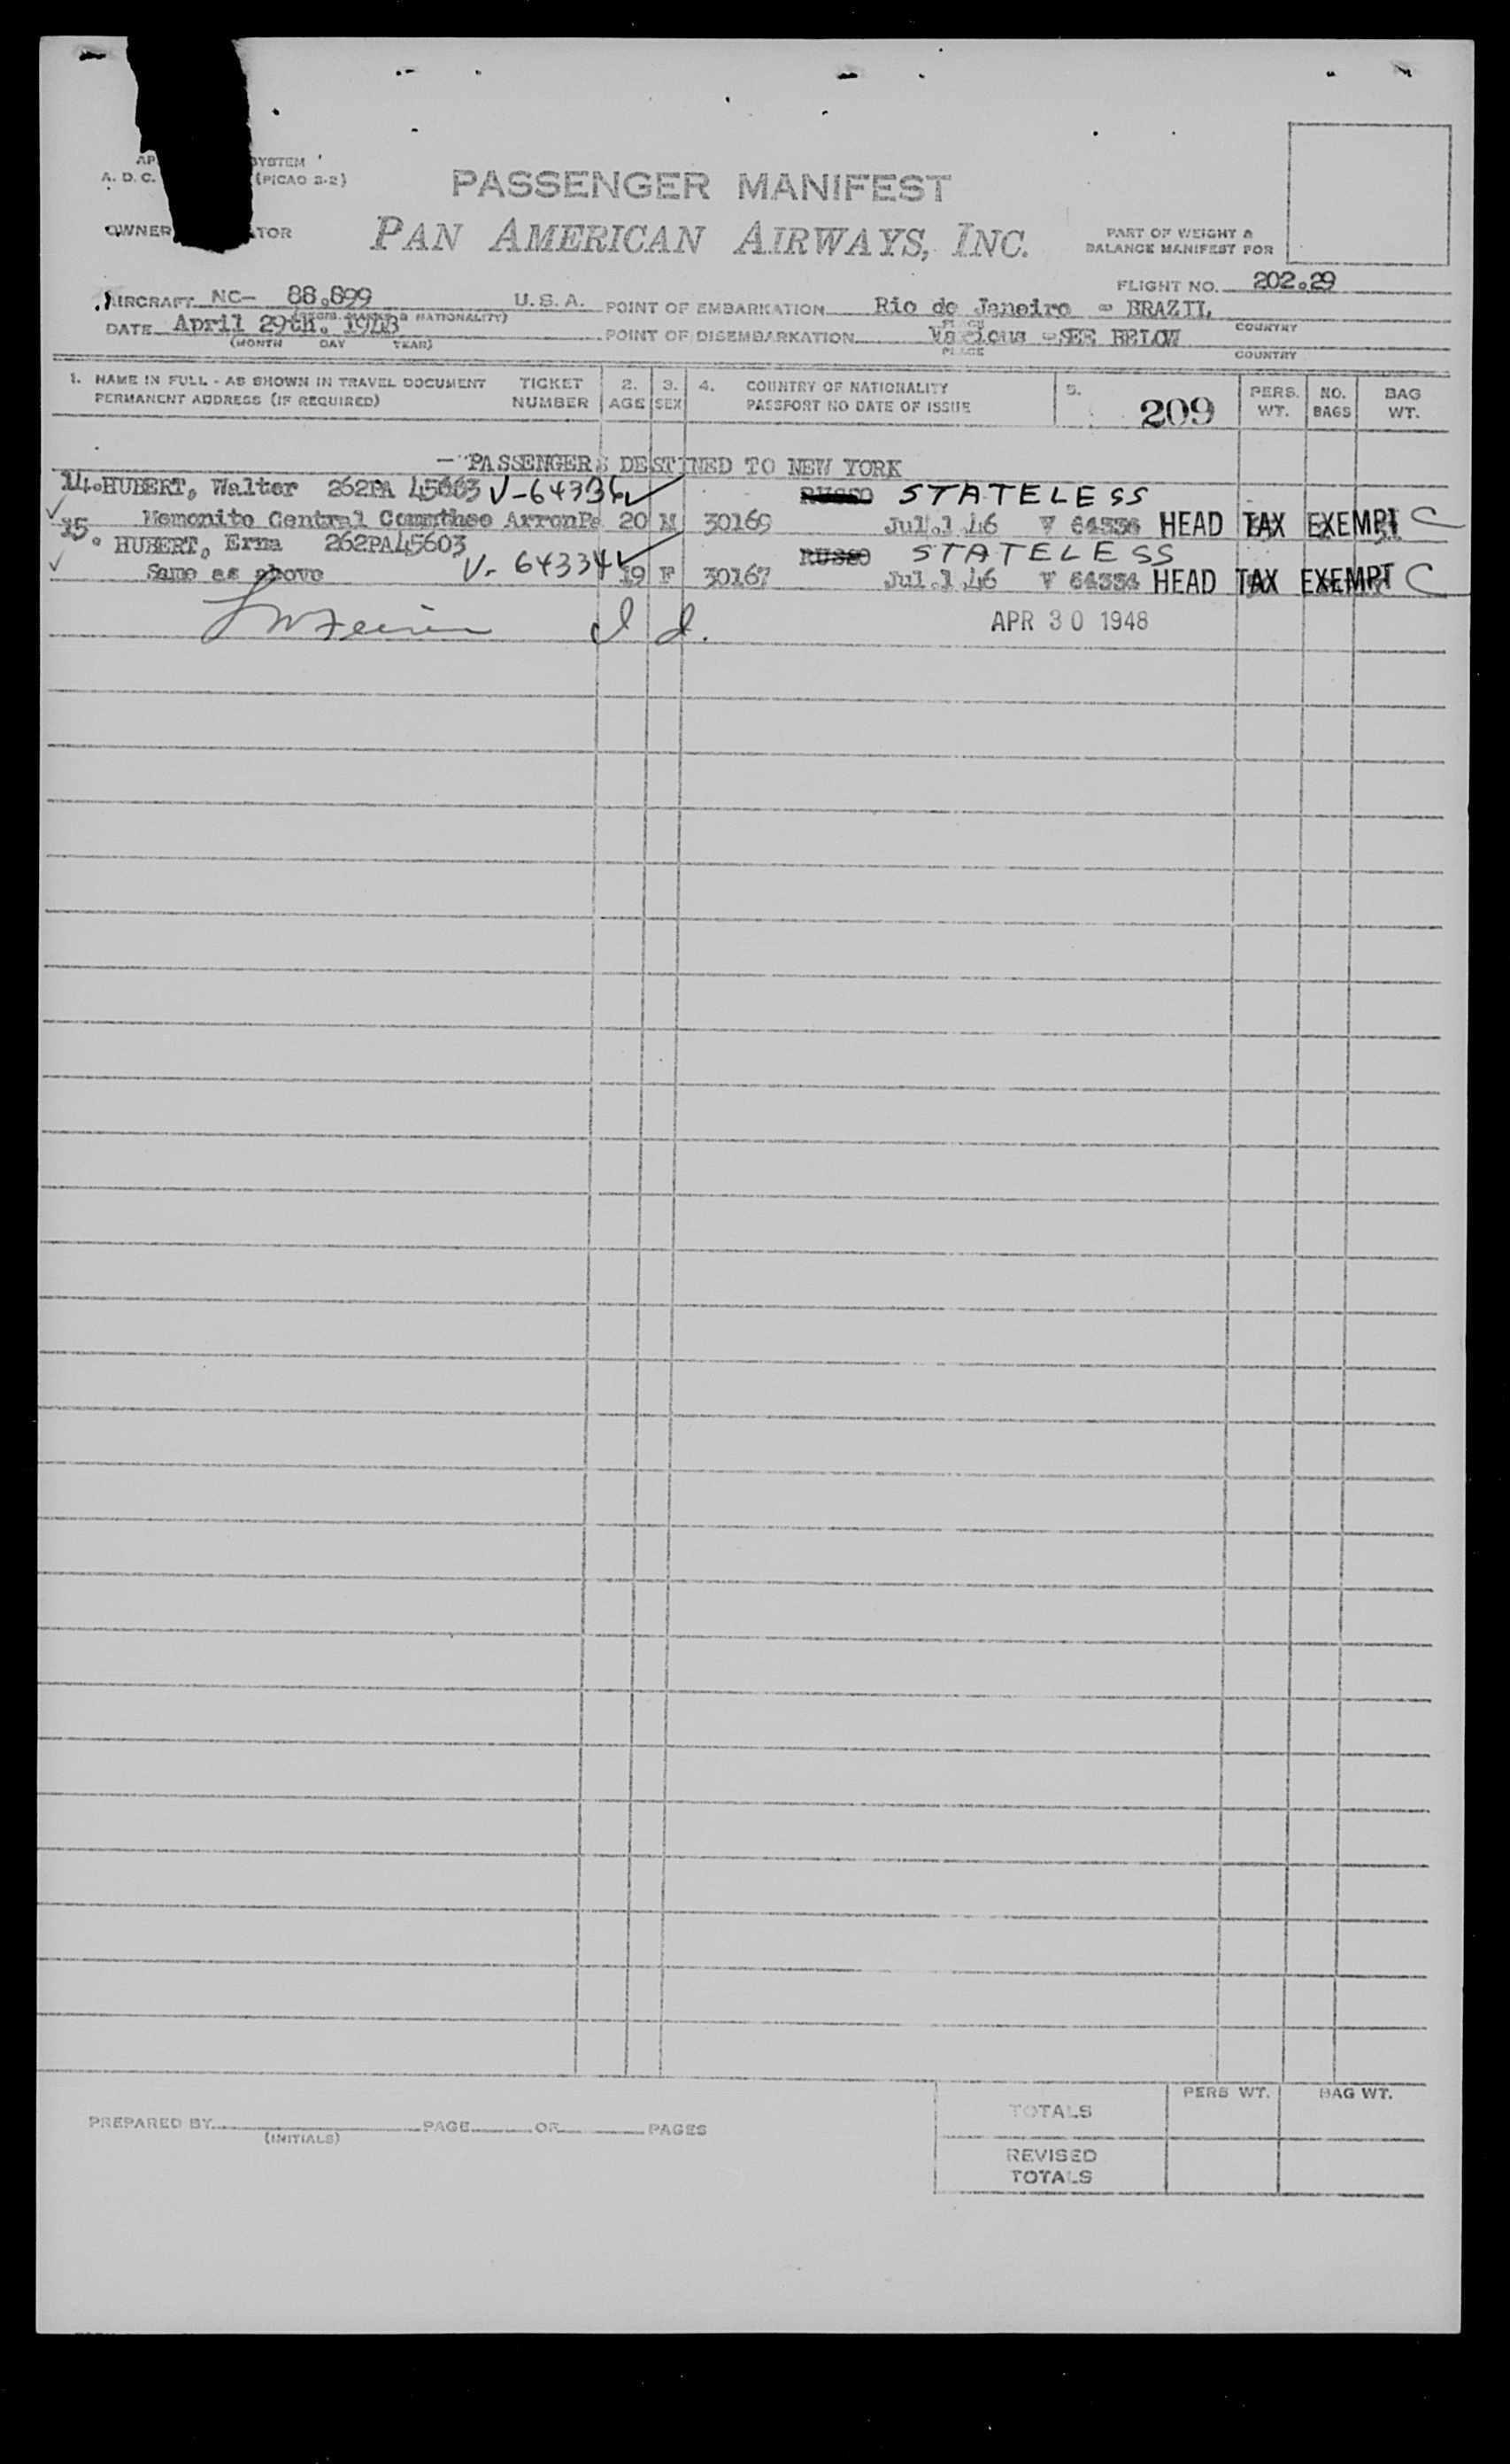 SYSTEM
A. D. C. (PICAO 3-2)
PASSENGER MANIFEST
OWNER TOR
PAN AMERICAN AIRWAYS, INC.
PART OF WEIGHT &
BALANCE MANIFEST FOR
FLIGHT NO. 202.29
AIRCRAFT NC- 88.899 U.S.A. POINT OF EMBARKATION Rio de Janeiro - BRAZIL
NATIONALITY) COUNTRY
DATE April 29th. 1948 POINT OF DISEMBARKATION Various -SEE BELOW
(MONTH DAY YEAR) PLACE COUNTRY
1. NAME IN FULL - AS SHOWN IN TRAVEL DOCUMENT TICKET 2. 3. 4. COUNTRY OF NATIONALITY 5. PERS. NO. BAG
PERMANENT ADDRESS (IF REQUIRED) NUMBER AGE SEX PASSPORT NO DATE OF ISSUE 209 WT. BAGS WT.
- PASSENGERS DESTINED TO NEW YORK
14. HUBERT, Walter 262PA 45603 V-64336 RUSSO STATELESS
Memonite Central Commthee ArronPa 20 M 30169 Jul.1 46 V 64336 HEAD TAX EXEMPT C
15. HUBERT, Erna 262PA45603 V-64334 RUSSO STATELESS
Same as above 19 F 30167 Jul.1 46 V 64334 HEAD TAX EXEMPT C
APR 30 1948
PERS WT. BAG WT.
TOTALS
PREPARED BY PAGE OF PAGES
(INITIALS)
REVISED
TOTALS